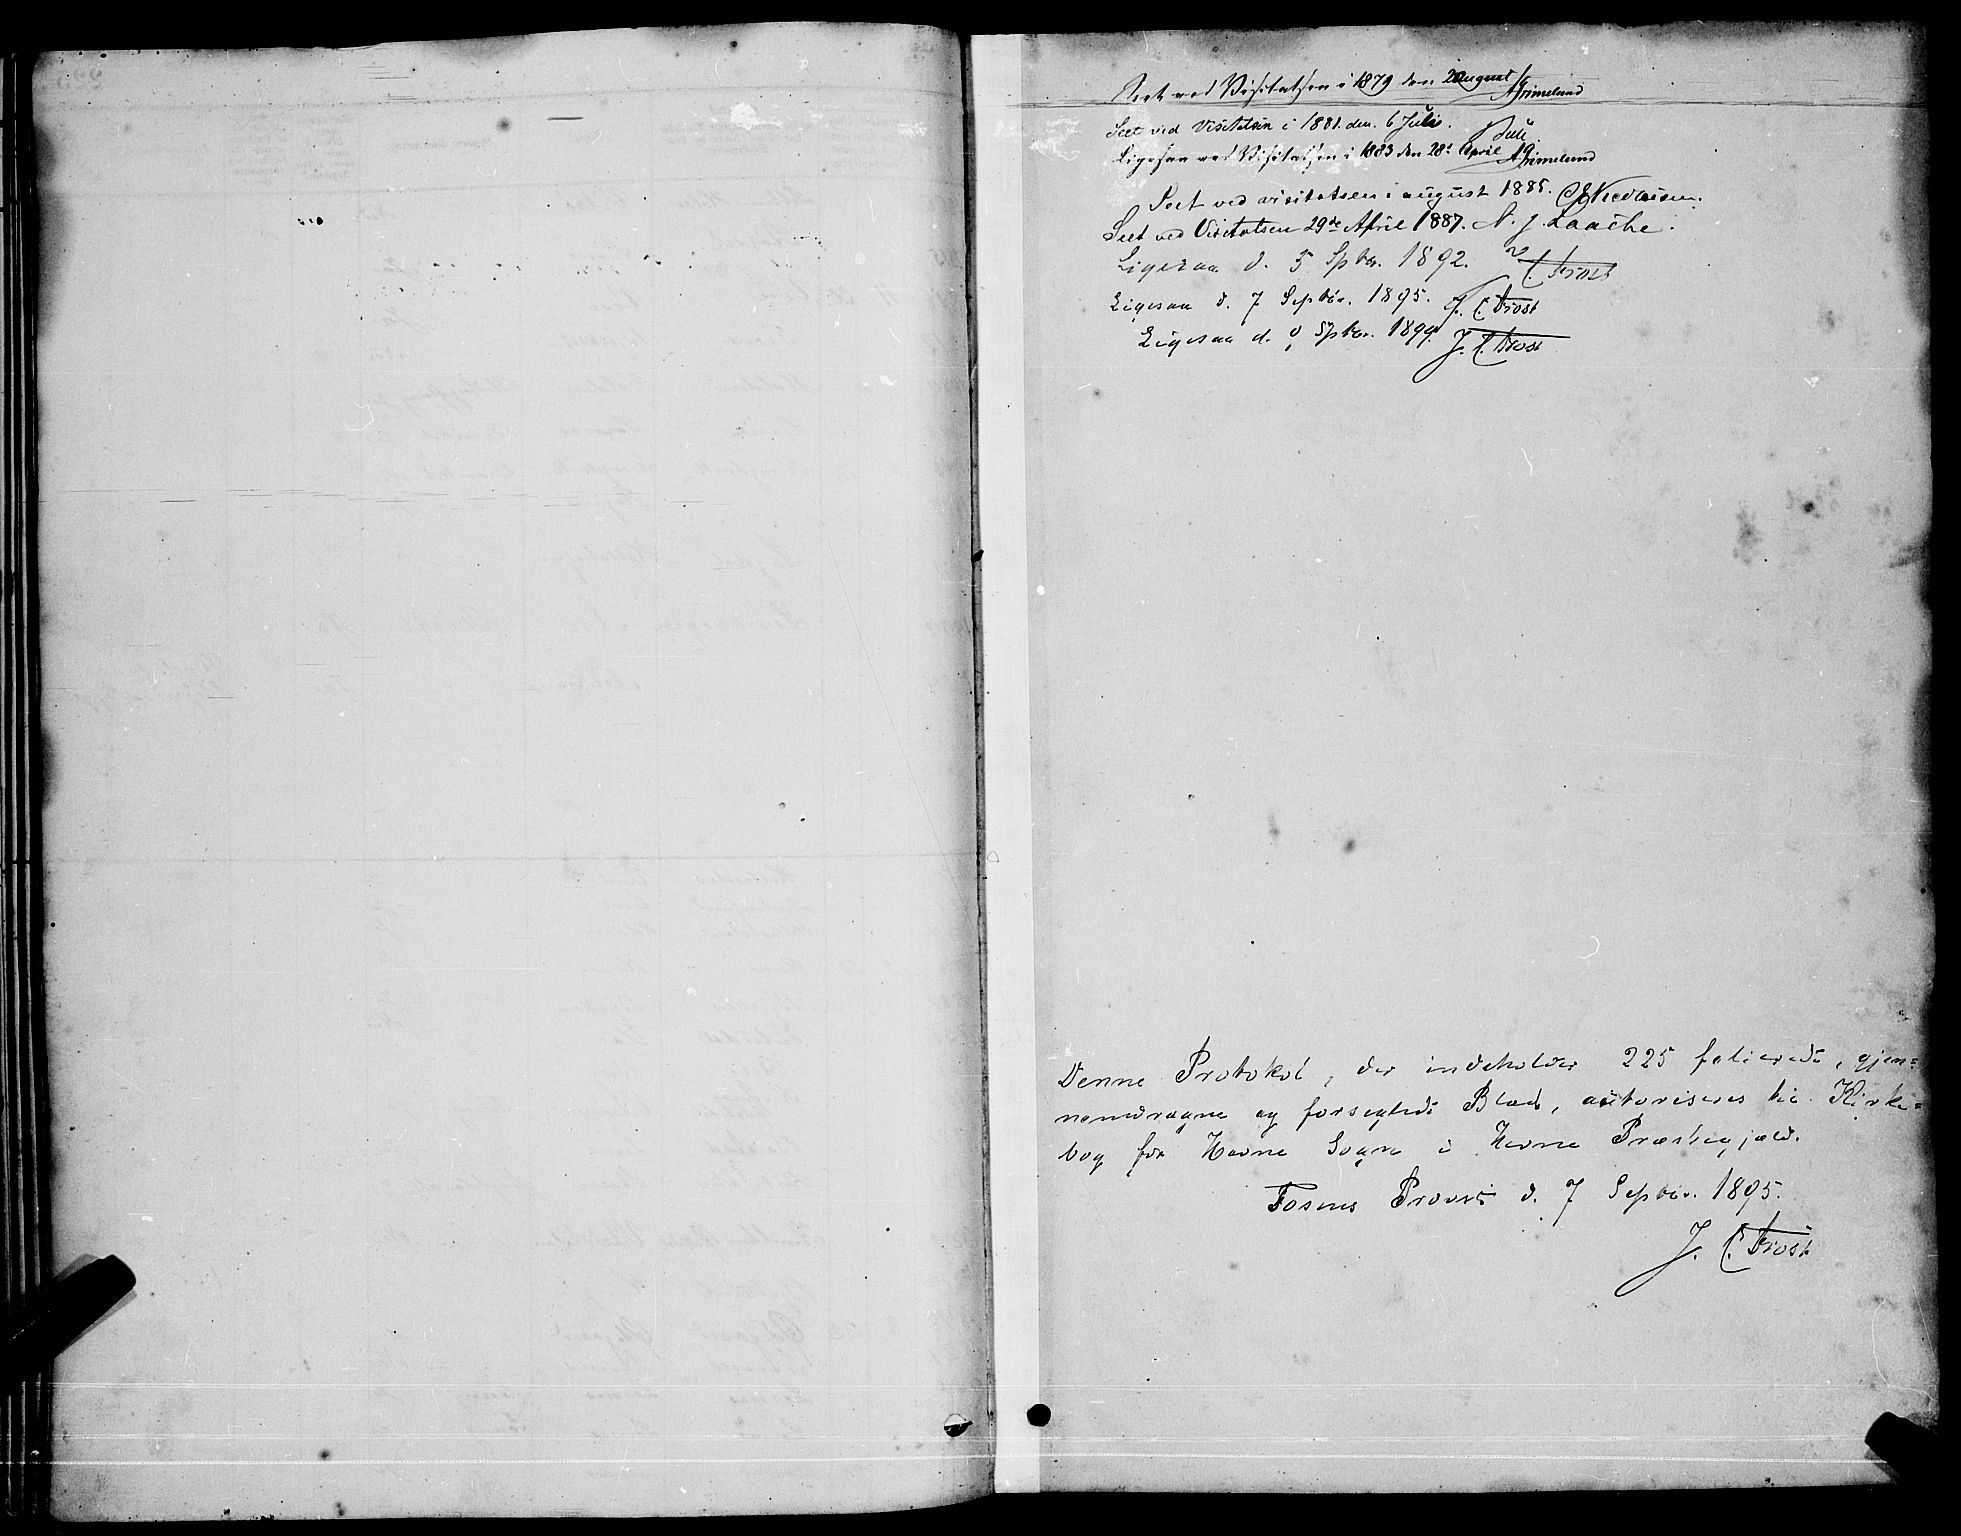 Seet ved Visitatsen i 1879 den 2 august AGrimelund
Seet ved Visitatsen i 1881. den. 6 Juli.
Ligesaa ved Visitatsen i 1883 den 28de April AGrimelund
Seet ved visitatsen i august 1885.
Seet ved Visitatsen 29de April 1887. N. J. Laache.
Ligesaa d. 5 Sptbr. 1892. J. C. Frost
Ligesaa d. 7 Septbr. 1895. J. C. Frost
Ligesaa d. Sptbr. 1899. J. C. Frost
Denne Protokol, der indeholder 225 folierede, gjen=
nemdragne og forseglede Blade, autoriseres til Kirke=
bog for Hevne Sogn i Hevne Præstegjæld.
Fosens Provsti d. 7 Septbr. 1895.
J. C. Frost